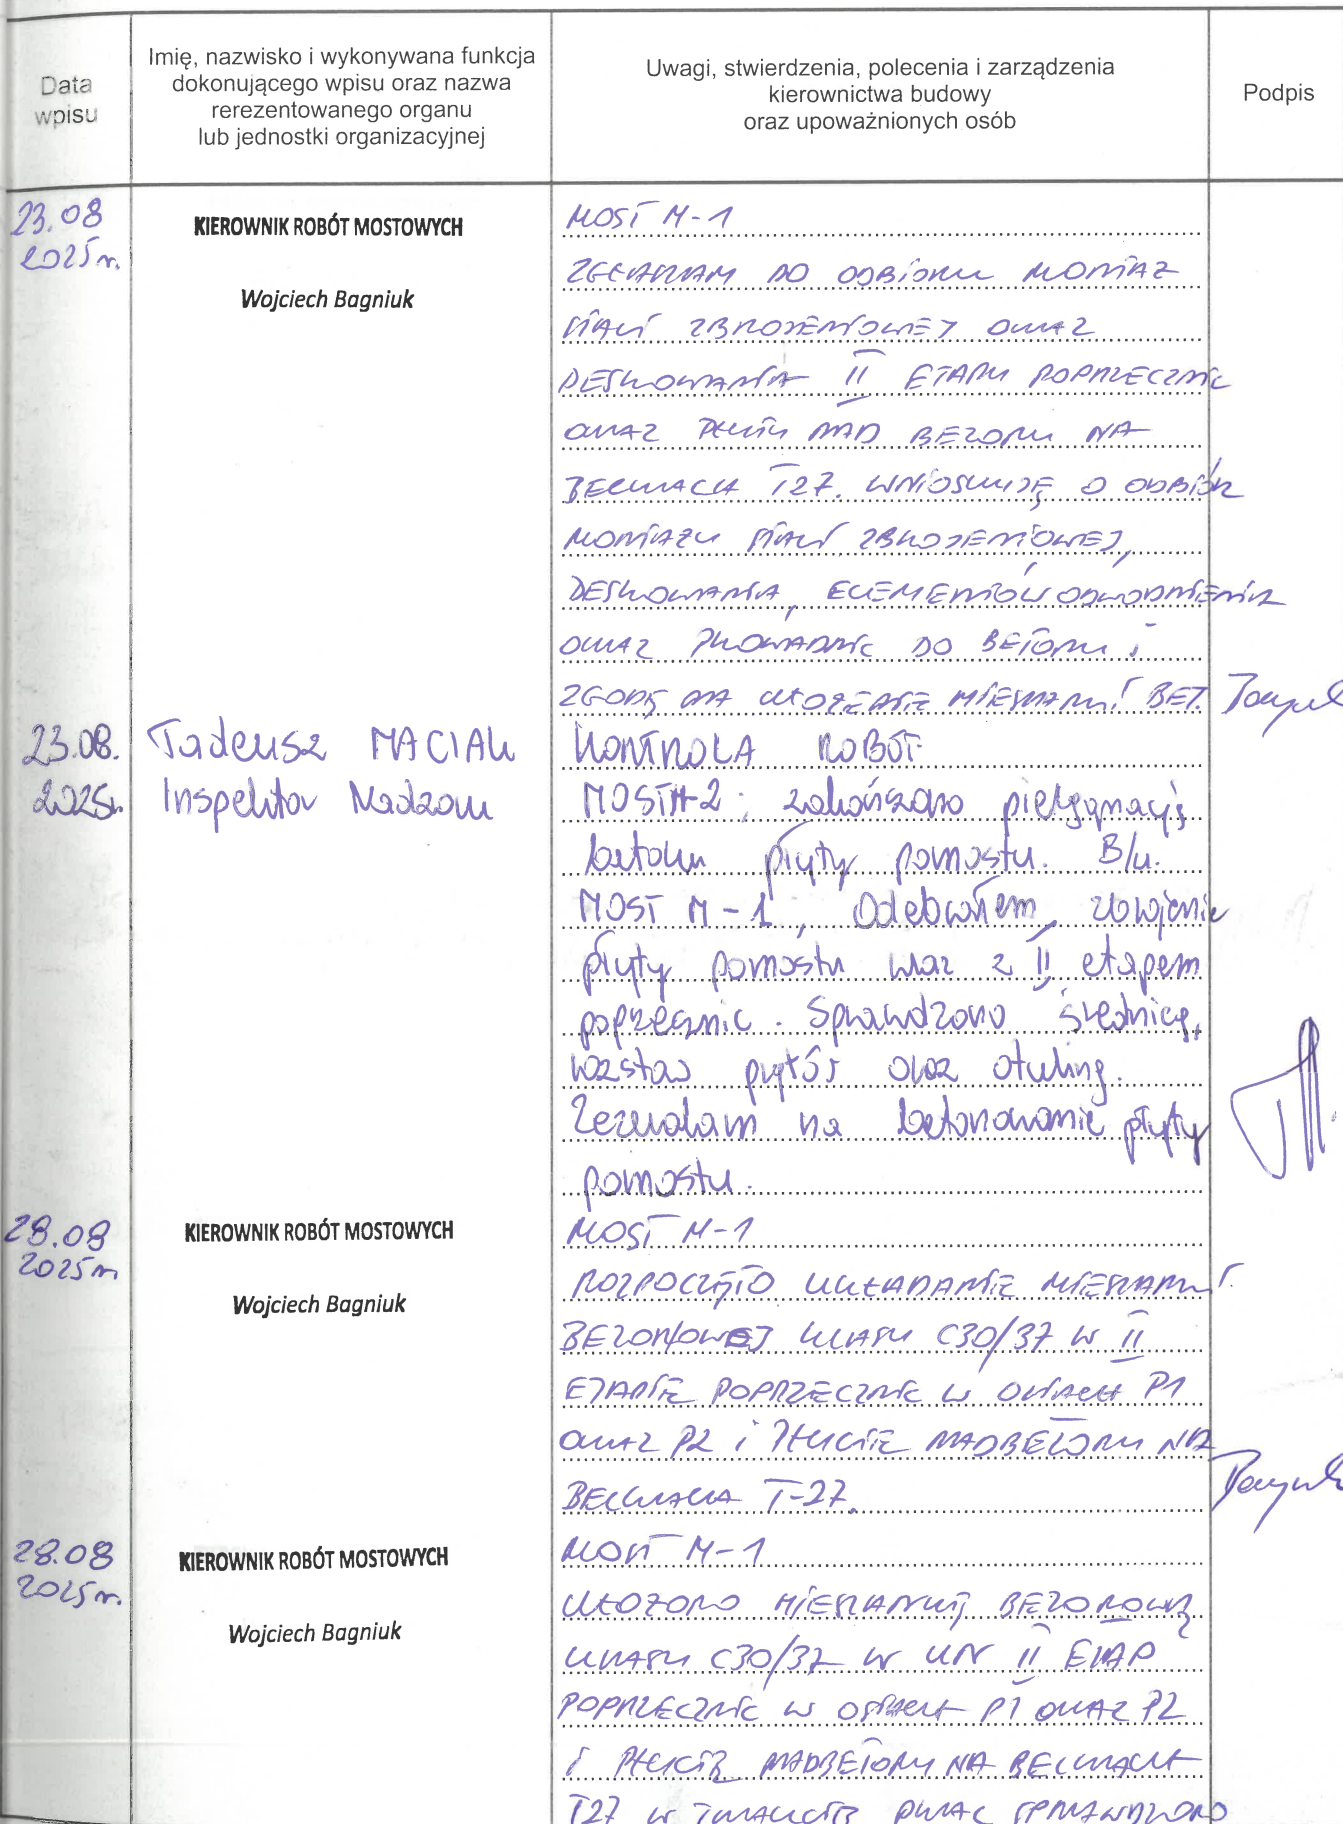 Data
wpisu
Imię, nazwisko i wykonywana funkcja
dokonującego wpisu oraz nazwa
rerezentowanego organu
lub jednostki organizacyjnej
Uwagi, stwierdzenia, polecenia i zarządzenia
kierownictwa budowy
oraz upoważnionych osób
Podpis
23.08
2025r.
KIEROWNIK ROBÓT MOSTOWYCH
Wojciech Bagniuk
MOST M-1
ZGŁASZAM DO ODBIORU MONTAŻ
STALI ZBROJENIOWEJ ORAZ
DESKOWANIA II ETAPU POPRZECZNIC
ORAZ PŁYTY NADBETONU NA
BELKACH T27. WNIOSKUJĘ O ODBIÓR
MONTAŻU STALI ZBROJENIOWEJ,
DESKOWANIA, ELEMENTÓW ODWODNIENIA
ORAZ PROWADNIC DO BETONU I
ZGODĘ NA UŁOŻENIE MIESZANKI BET.
23.08.
2025r.
Tadeusz MACIAK
Inspektor Nadzoru
KONTROLA ROBÓT
MOST M-2: zakończono pielęgnację
betonu płyty pomostu. B/u.
MOST M-1, Odebrałem zbrojenie
płyty pomostu wraz z II etapem
poprzecznic. Sprawdzono średnicę,
rozstaw prętów oraz otulinę.
Zezwalam na betonowanie płyty
pomostu.
28.08
2025r
KIEROWNIK ROBÓT MOSTOWYCH
Wojciech Bagniuk
MOST M-1
ROZPOCZĘTO UKŁADANIE MIESZANKI
BETONOWEJ KLASY C30/37 W II
ETAPIE POPRZECZNIC W OSIACH P1
ORAZ P2 I PŁYCIE NADBETONU NA
BELKACH T-27.
28.08
2025r.
KIEROWNIK ROBÓT MOSTOWYCH
Wojciech Bagniuk
MOST M-1
UŁOŻONO MIESZANKĘ BETONOWĄ
KLASY C30/37 W II ETAP
POPRZECZNIC W OSIACH P1 ORAZ P2
I PŁYCIE NADBETONU NA BELKACH
T27 W TRAKCIE PRAC SPRAWDZONO